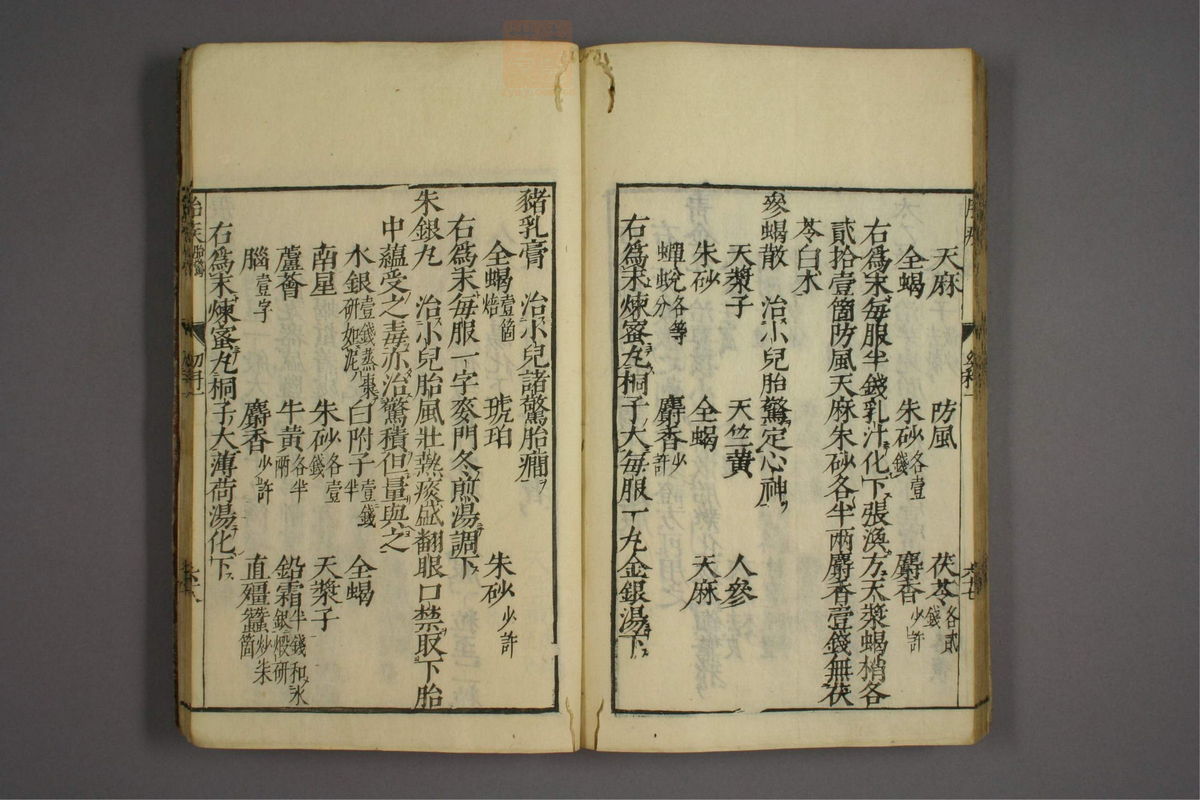 天麻　防風　茯苓各貳錢
全蝎　朱砂各壹錢　麝香少許
右爲末每服半錢乳汁化下張渙方天漿蝎梢各
貳拾壹箇防風天麻朱砂各半兩麝香壹錢無茯
苓白朮
參蝎散　治小兒胎驚定心神
天漿子　天竺黄　人參
朱砂　全蝎　天麻
蟬蛻各等分　麝香少許
右爲末煉蜜丸桐子大每服一丸金銀湯下
豬乳膏　治小兒諸驚胎癇
全蝎壹箇焙　琥珀　朱砂少許
右爲末每服一字麥門冬煎湯調下
朱銀丸　治小兒胎風壯熱痰盛翻眼口禁取下胎
中蘊受之毒亦治驚積但量與之
水銀壹錢蒸棗研如泥　白附子壹錢半　全蝎
南星　朱砂各壹錢　天漿子
蘆薈　牛黄各半兩　鉛霜半錢和水銀煅研
腦壹字　麝香少許　直殭蠶炒朱箇
右爲末煉蜜丸桐子大薄荷湯化下